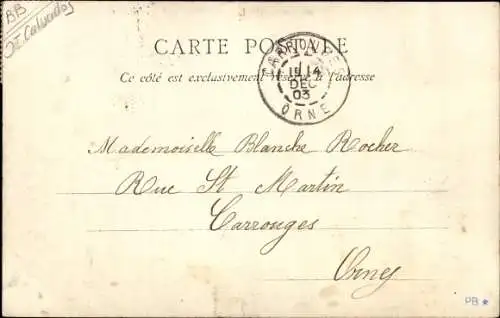 BB
Jt Calvados
CARTE POSTALE
Ce côté est exclusivement réservé à l'adresse
CARROUGES
14
DEC
03
ORNE
Mademoiselle Blanche Rocher
Rue St Martin
Carrouges
Orne
PB *